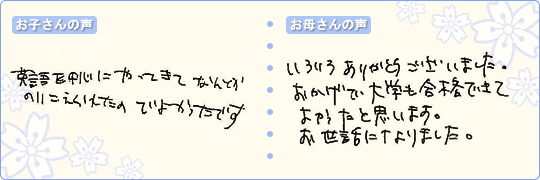 お子さんの声
英語を中心にやってきて なんとか
のりこえられたの でよかったです
お母さんの声
いろいろ ありがとう ございました。
おかげで 大学も 合格できて
よかったと思います。
お世話になりました。